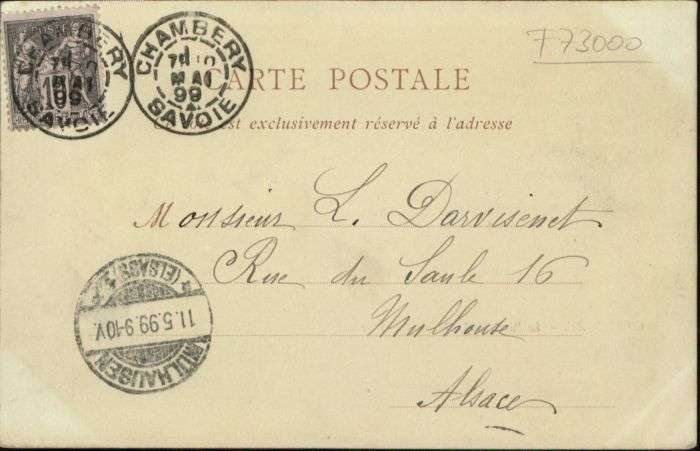 CHAMBERY
MAI
99
SAVOIE
CHAMBERY
MAI
99
SAVOIE
F73000
CARTE POSTALE
est exclusivement réservé à l'adresse
Monsieur L. Darvisenet
Rue du Saule 16
Mulhouse
Alsace
MÜLHAUSEN
11.5.99.9-10V.
(ELSASS)